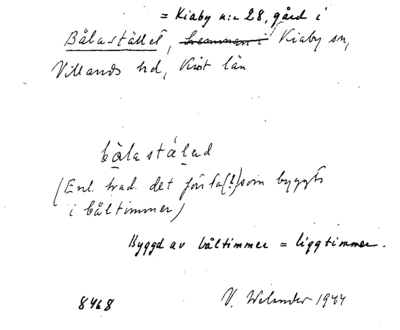 = Kiaby n:o 28, gård i
Bålastället, hemman i Kiaby sn,
Villands hd, Krist län
bålastälad
(Enl. trad. det första (!) som byggts
i båltimmer)
Byggd av båltimmer = liggtimmer.
8468 V. Welander 1944